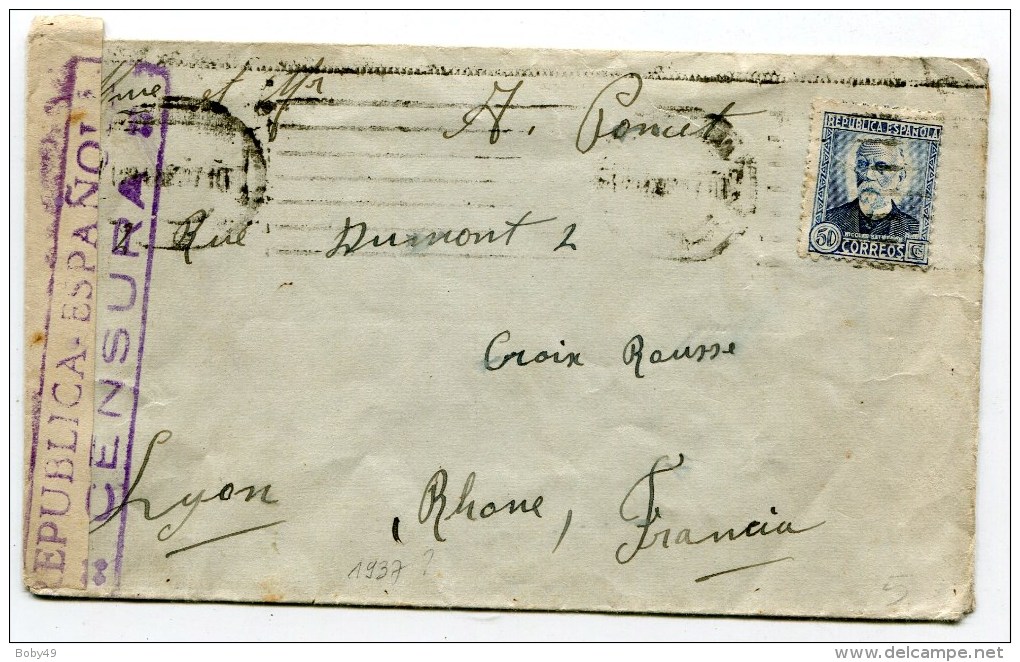 Mme et Mr A. Poncet
2 Rue Dumont 2
Croix Rousse
Lyon (Rhone) Francia
1937?
5
REPUBLICA ESPAÑOLA
CENSURA
REPUBLICA ESPAÑOLA
50 CORREOS C
Boby49
delcampe.net